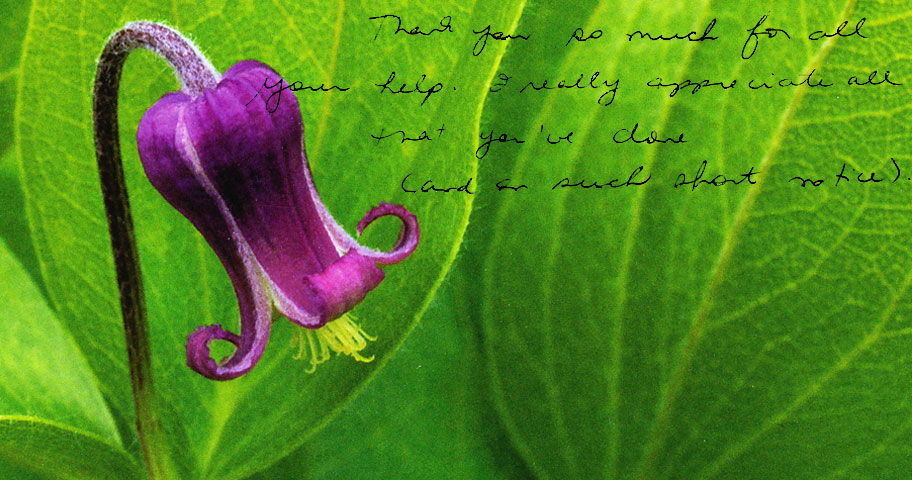 Thank you so much for all
your help. I really appreciate all
that you've done
(and on such short notice).